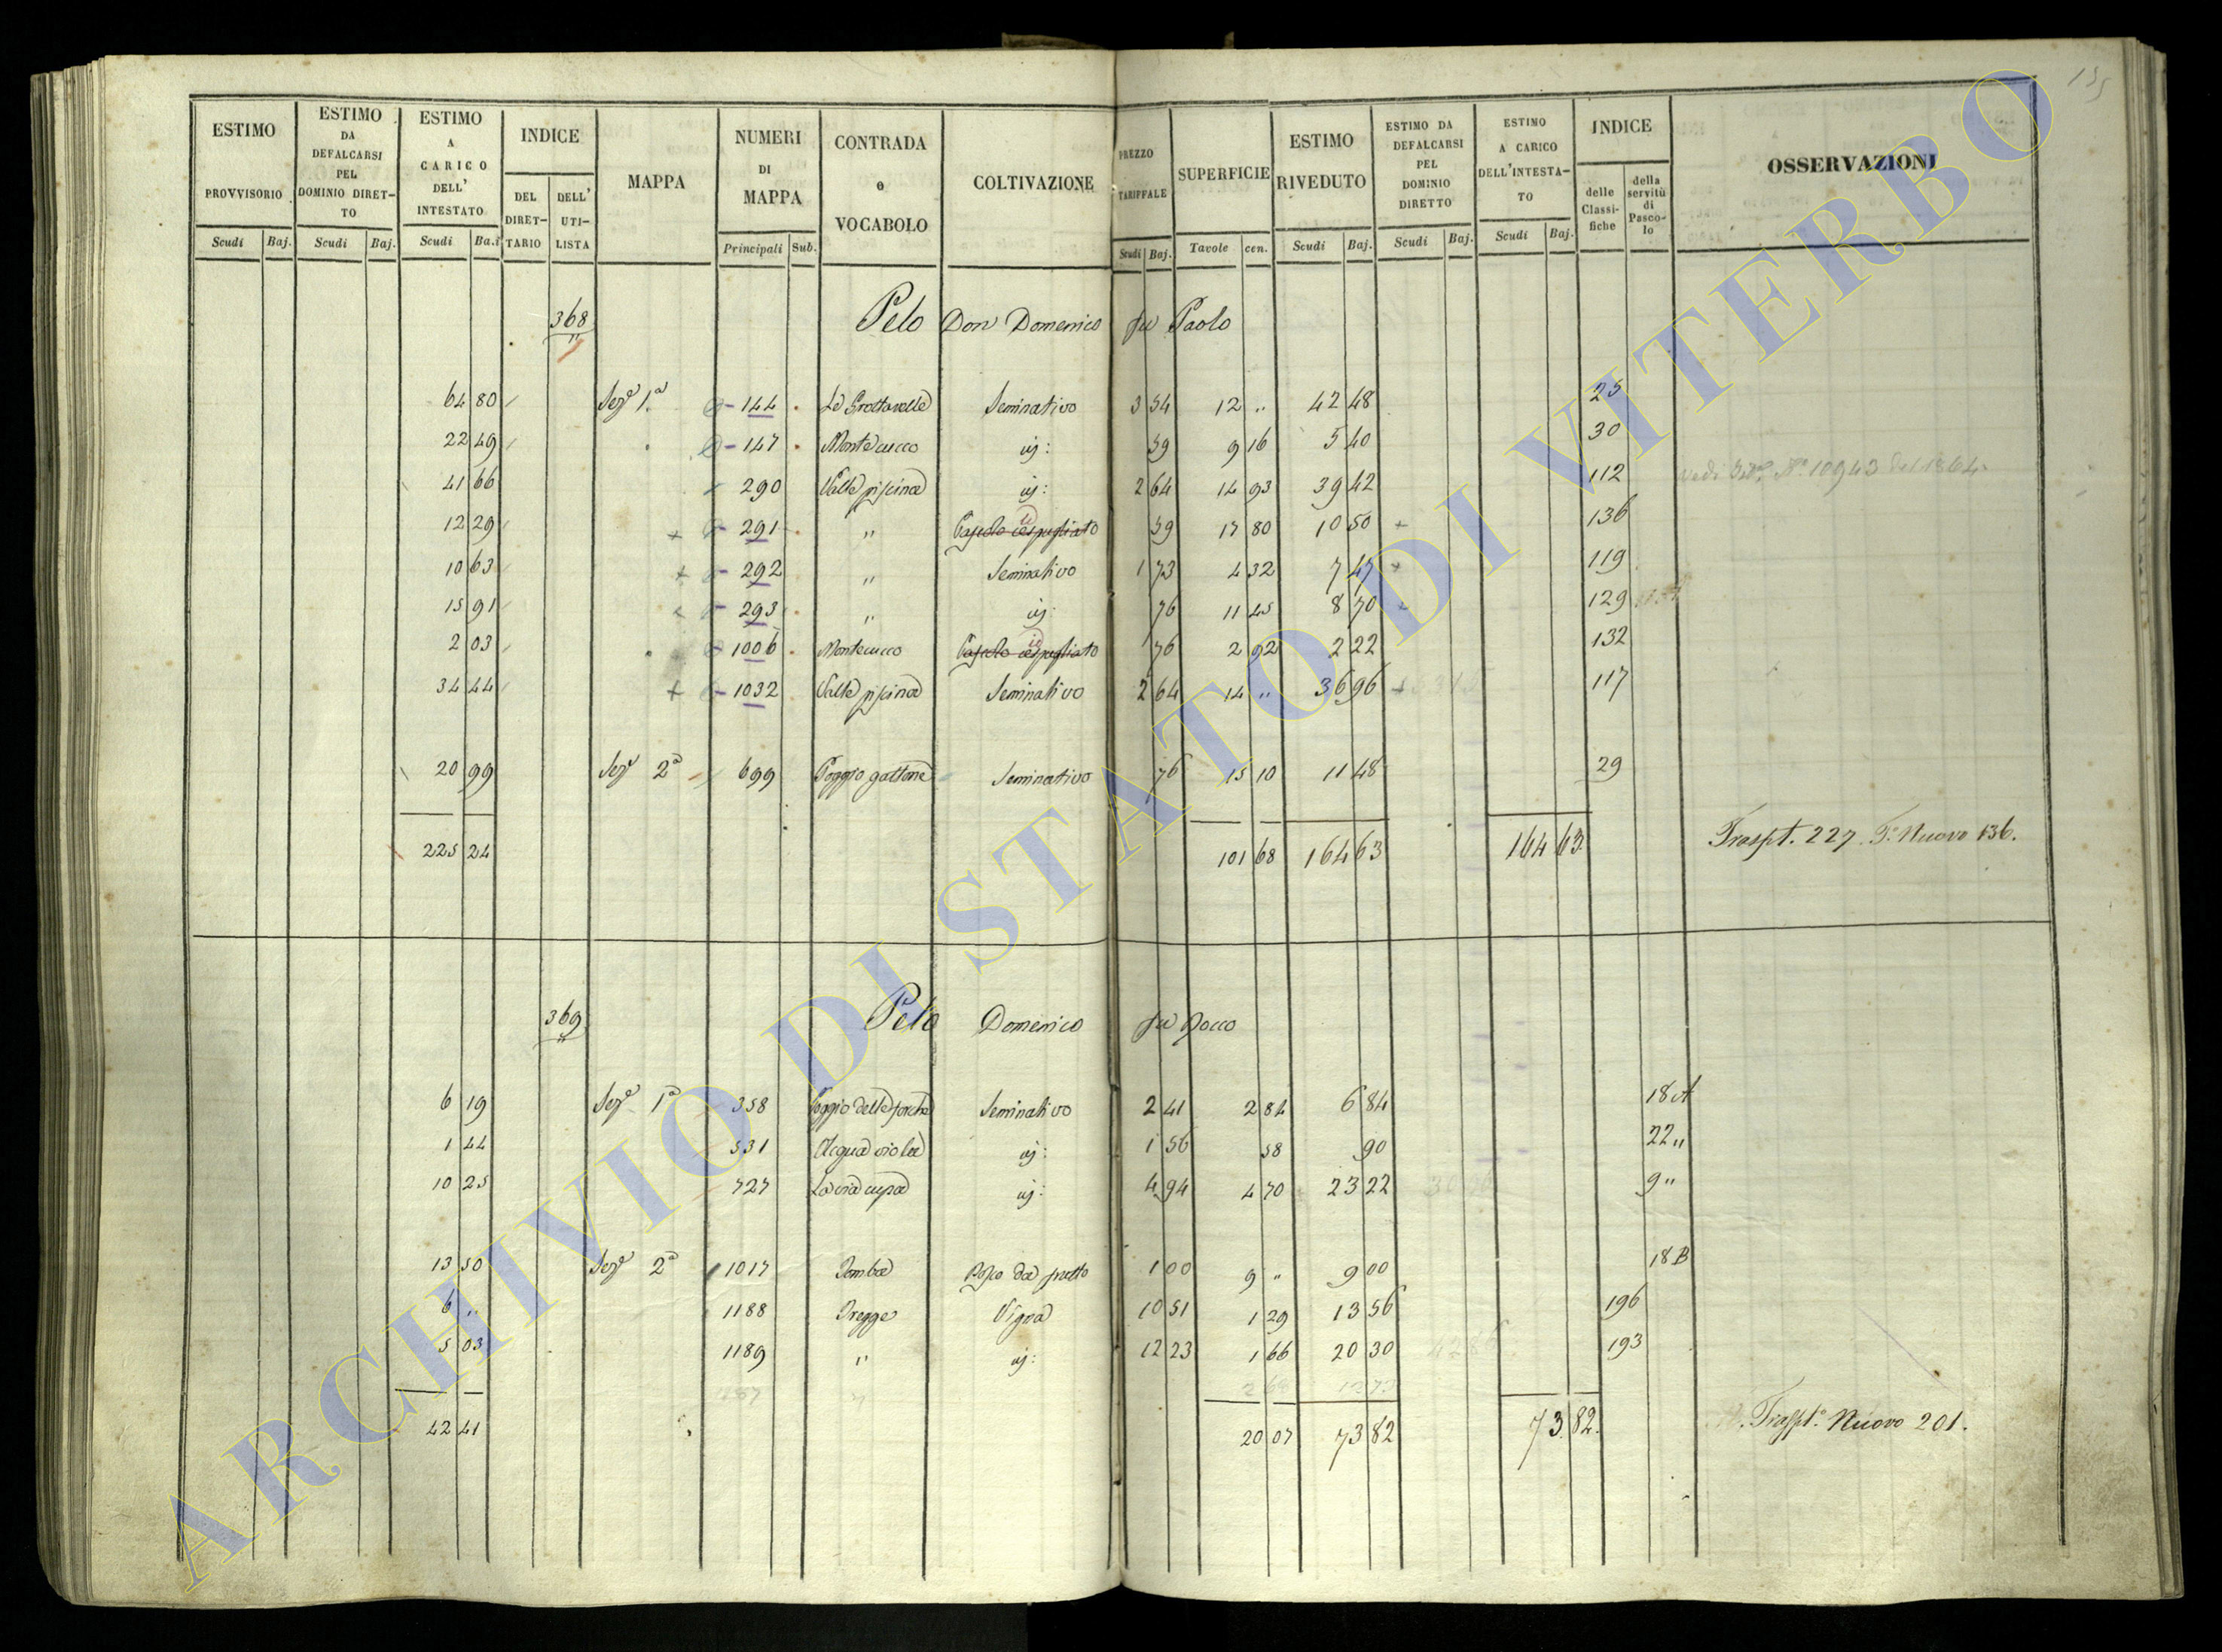 155
ESTIMO PROVVISORIO Scudi Baj.
ESTIMO DA DEFALCARSI PEL DOMINIO DIRET-TO Scudi Baj.
ESTIMO A CARICO DELL' INTESTATO Scudi Ba.i
INDICE DEL DIRET-TARIO DELL' UTI-LISTA
MAPPA
NUMERI DI MAPPA Principali Sub.
CONTRADA o VOCABOLO
COLTIVAZIONE
PREZZO TARIFFALE Scudi Baj.
SUPERFICIE Tavole cen.
ESTIMO RIVEDUTO Scudi Baj.
ESTIMO DA DEFALCARSI PEL DOMINIO DIRETTO Scudi Baj.
ESTIMO A CARICO DELL'INTESTA-TO Scudi Baj.
INDICE delle Classi-fiche della servitù di Pasco-lo
OSSERVAZIONI
368 Pelo Don Domenico fu Paolo
64 80 Seze 1a 144 Le Grottavalle Seminativo 3 54 12 " 42 48 25
22 49 147 Montecucco id: 59 9 16 5 40 30
41 66 290 Valle piscina id: 2 64 14 93 39 42 112 Vedi N° 10943 del 1864
12 29 291 " Pascolo cespugliato id 59 17 80 10 50 136
10 63 292 " Seminativo 1 73 4 32 7 47 119
15 91 293 " id: 76 11 45 8 70 129
2 03 1006 Montecucco Pascolo cespugliato id 76 2 92 2 22 132
34 44 1032 Valle piscina Seminativo 2 64 14 " 36 96 117
20 99 Seze 2a 699 Poggio gallone Seminativo 76 15 10 11 48 29
225 24 101 68 164 63 164 63 Traspt. 227 T° Nuovo 136.
369 Pelo Domenico fu Rocco
6 19 Seze 1a 358 Poggio delle forche Seminativo 2 41 2 84 6 84 18 A
1 44 531 Acqua viola id: 1 56 58 90 22 "
10 25 727 La via cupa id: 4 94 4 70 23 22 9 "
13 50 Seze 2a 1017 Tomba Bosco da frutto 1 00 9 " 9 00 18 B
6 " 1188 Tregge Vigna 10 51 1 29 13 56 196
5 03 1189 " id: 12 23 1 66 20 30 193
42 41 20 07 73 82 73 82. Traspt° Nuovo 201.
ARCHIVIO DI STATO DI VITERBO